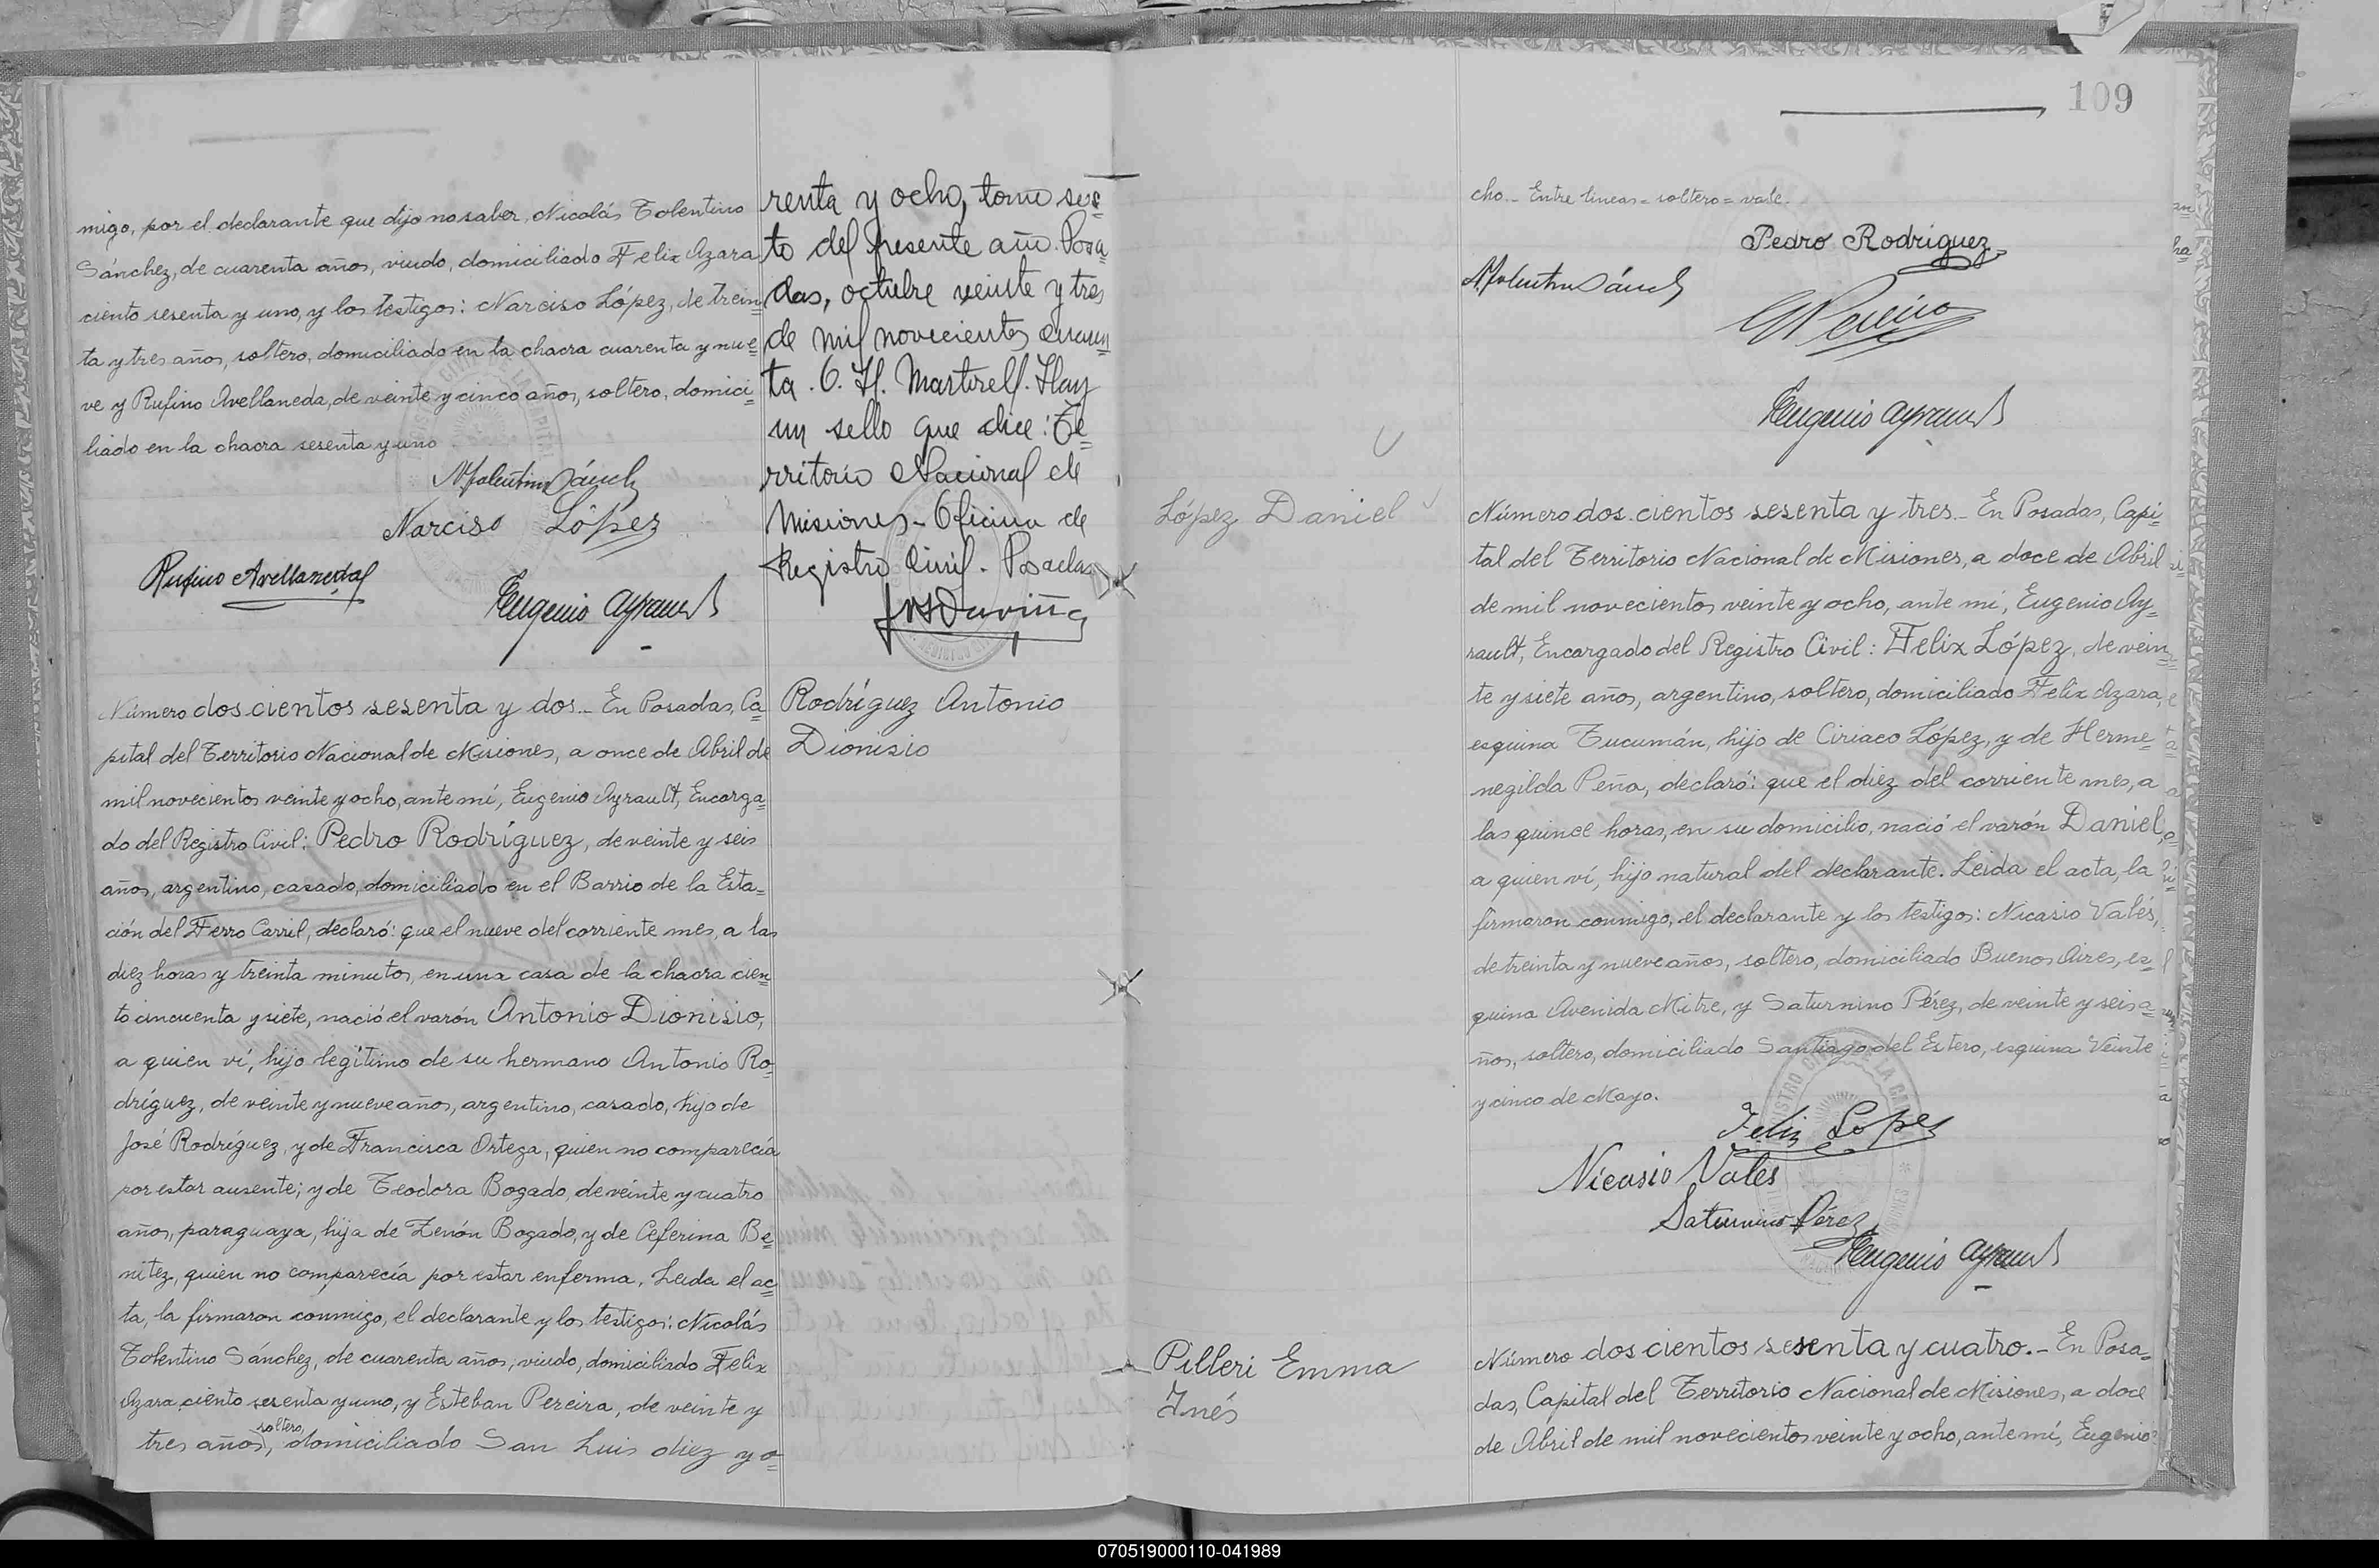 migo, por el declarante que dijo no saber, Nicolás Tolentino
Sánchez, de cuarenta años, viudo, domiciliado Felix Azara
ciento sesenta y uno, y los testigos: Narciso López, de trein=
ta y tres años, soltero, domiciliado en la chacra cuarenta y nue=
ve y Rufino Avellaneda, de veinte y cinco años, soltero, domici=
liado en la chacra sesenta y uno
Narciso López
Rufino Avellaneda
Eugenio Ayrault
renta y ocho, tomo sex=
to del presente año. Posa=
das, octubre veinte y tres
de mil novecientos cuaren=
ta. O. H. Martirell. Hay
un sello que dice: Te=
rritorio Nacional de
Misiones - Oficina de
Registro Civil - Posadas
Número dos cientos sesenta y dos.- En Posadas, Ca=
pital del Territorio Nacional de Misiones, a once de Abril de
mil novecientos veinte y ocho, ante mí, Eugenio Ayrault, Encarga=
do del Registro Civil: Pedro Rodríguez, de veinte y seis
años, argentino, casado, domiciliado en el Barrio de la Esta=
ción del Ferro Carril, declaró: que el nueve del corriente mes, a las
diez horas y treinta minutos, en una casa de la chacra cien=
to cincuenta y siete, nació el varón Antonio Dionisio,
a quien ví, hijo legítimo de su hermano Antonio Ro=
dríguez, de veinte y nueve años, argentino, casado, hijo de
José Rodríguez, y de Francisca Ortega, quien no comparecía
por estar ausente; y de Teodora Bogado, de veinte y cuatro
años, paraguaya, hija de Zenón Bogado, y de Ceferina Be=
nitez, quien no comparecía por estar enferma. Leida el ac=
ta, la firmaron conmigo, el declarante y los testigos: Nicolás
Tolentino Sánchez, de cuarenta años, viudo, domiciliado Felix
Azara ciento sesenta y uno, y Esteban Pereira, de veinte y
soltero,
tres años, domiciliado San Luis diez y o=
Rodríguez Antonio
Dionisio
109
cho.- Entre lineas = soltero = vale.
Pedro Rodriguez
Eugenio Ayrault
López Daniel
Número dos cientos sesenta y tres.- En Posadas, Capi=
tal del Territorio Nacional de Misiones, a doce de Abril
de mil novecientos veinte y ocho, ante mí, Eugenio Ay=
rault, Encargado del Registro Civil: Felix López, de vein=
te y siete años, argentino, soltero, domiciliado Felix Azara,
esquina Tucumán, hijo de Ciriaco López, y de Herme=
negilda Peña, declaró: que el diez del corriente mes, a
las quince horas, en su domicilio, nació el varón Daniel,
a quien ví, hijo natural del declarante. Leida el acta, la
firmaron conmigo, el declarante y los testigos: Nicasio Valés,
de treinta y nueve años, soltero, domiciliado Buenos Aires, es=
quina Avenida Mitre, y Saturnino Pérez, de veinte y seis a=
ños, soltero, domiciliado Santiago del Estero, esquina Veinte
y cinco de Mayo.
Felix López
Nicasio Vales
Saturnino Pérez
Eugenio Ayrault
Pilleri Emma
Inés
Número dos cientos sesenta y cuatro.- En Posa=
das, Capital del Territorio Nacional de Misiones, a doce
de Abril de mil novecientos veinte y ocho, ante mí, Eugenio
070519000110-041989